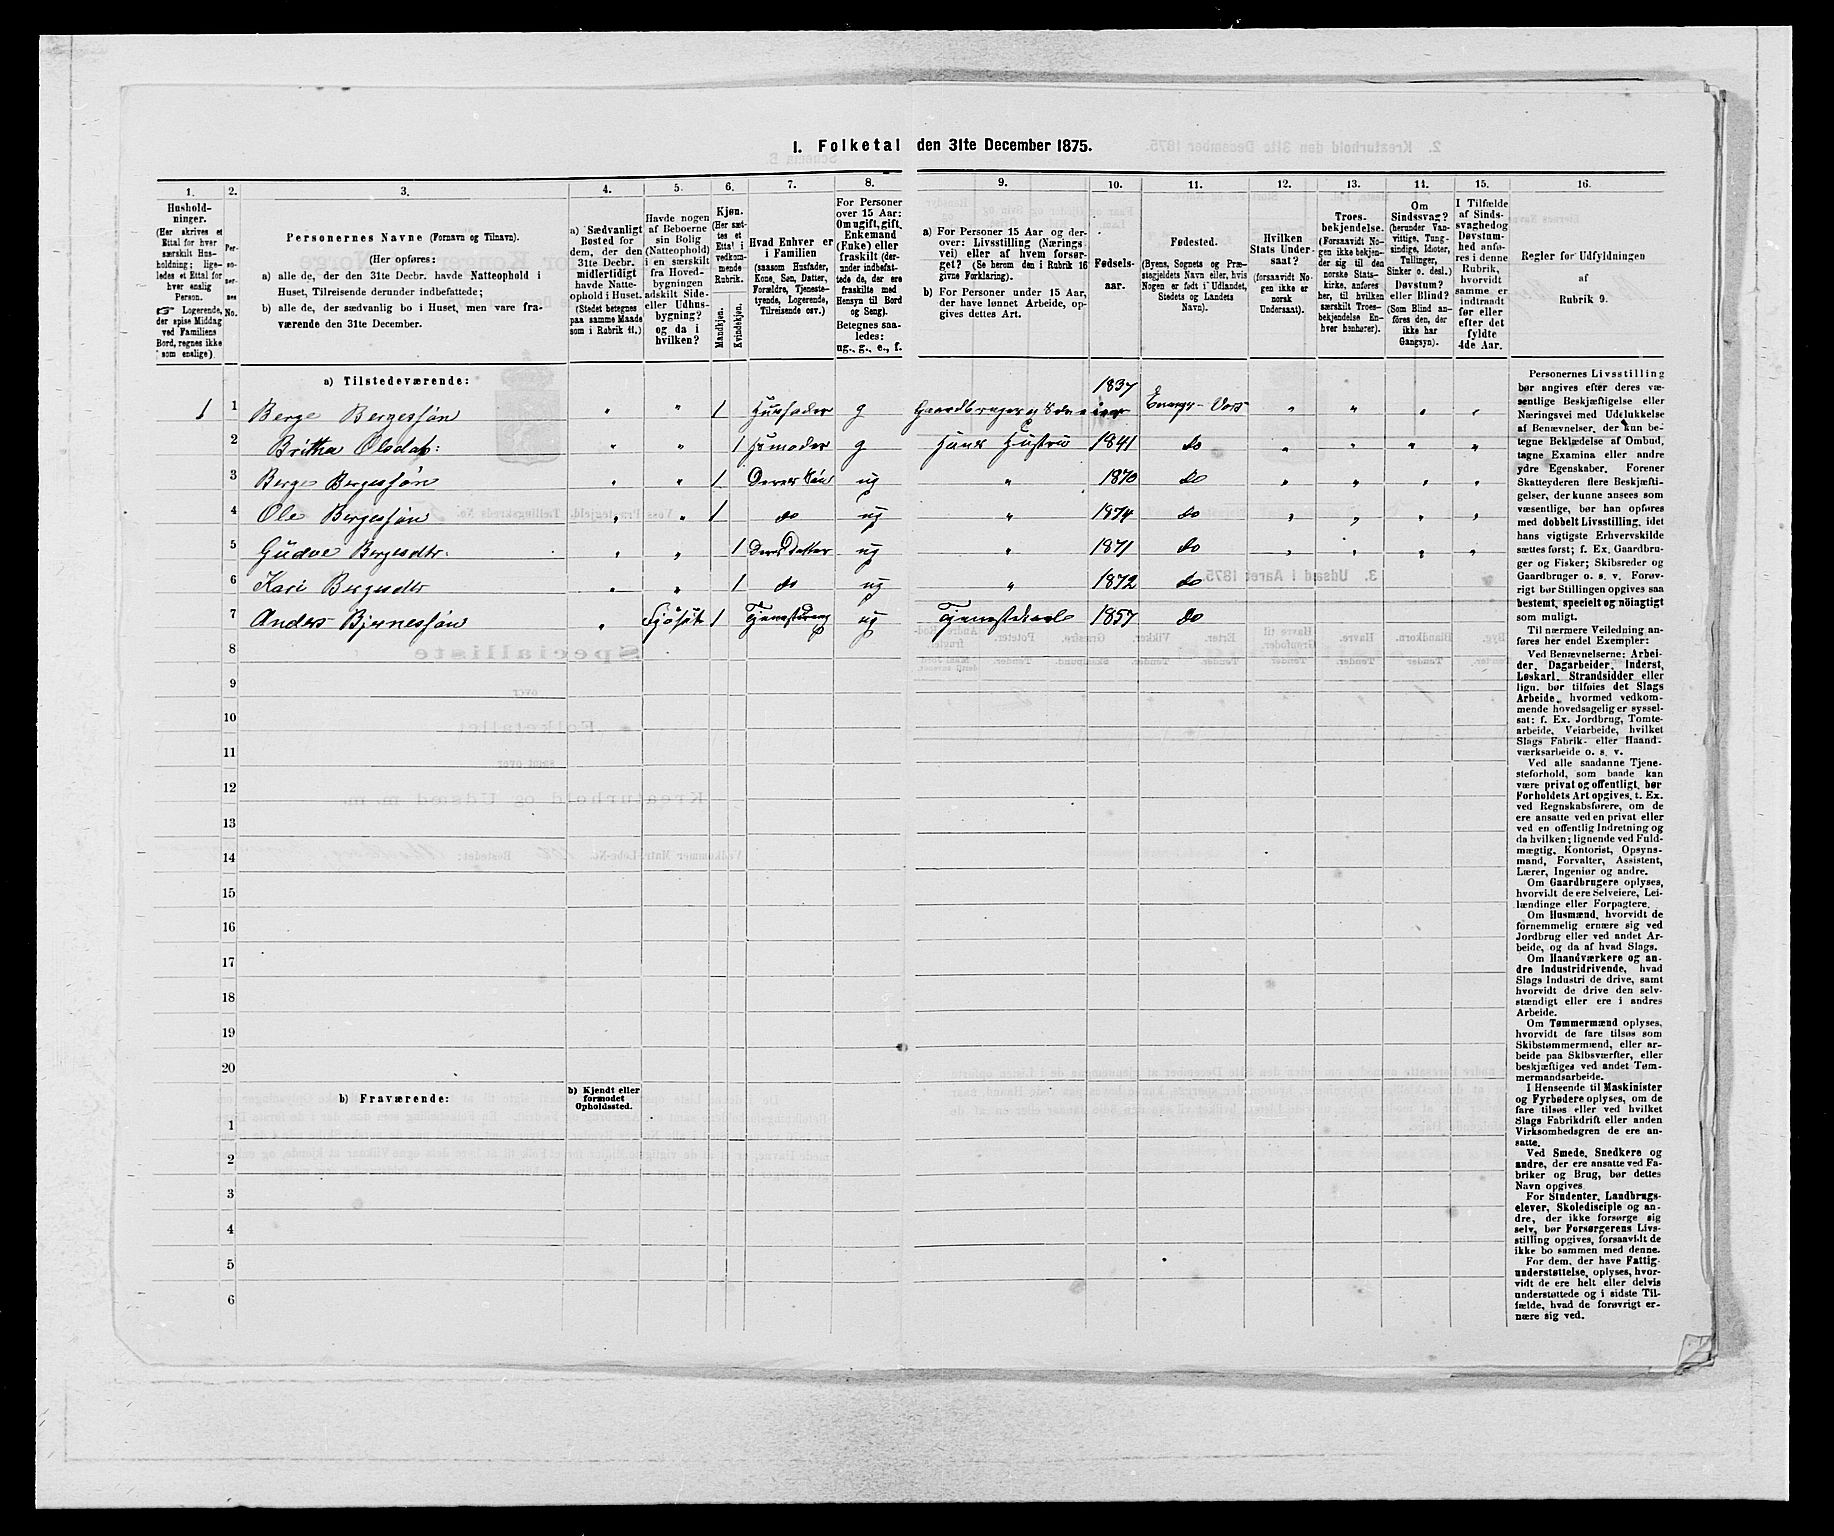 1. Folketal den 31te December 1875.
1.
2.
3.
4.
5.
6.
7.
8.
9.
10.
11.
12.
13.
14.
15.
16.
Hushold-
ninger.
(Her skrives et
Ettal for hver
særskilt Hus-
holdning; lige-
ledes et Ettal for
hver enslig
Person.
☞ Logerende,
der spise Middag
ved Familiens
Bord, regnes ikke
som enslige).
Per-
so-
ner-
nes
No.
Personernes Navne (Fornavn og Tilnavn).
(Her opføres:
a) alle de, der den 31te Decbr. havde Natteophold i
Huset, Tilreisende derunder indbefattede;
b) alle de, der sædvanlig bo i Huset, men vare fra-
værende den 31te December.
a) Sædvanligt
Bosted for
dem, der den
31te Decbr.
midlertidigt
havde Natte-
ophold i Huset.
(Stedet betegnes
paa samme Maade
som i Rubrik 11.)
Havde nogen
af Beboerne
sin Bolig
(Natteophold)
i en særskilt
fra Hoved-
bygningen
adskilt Side-
eller Udhus-
bygning?
og da i
hvilken?
Kjøn.
(Her sæt-
tes et
Ettal i
vedkom-
mende
Rubrik.
Mandkjøn.
Kvindekjøn.
Hvad Enhver er
i Familien
(saasom Husfader,
Kone, Søn, Datter,
Forældre, Tjeneste-
tyende, Logerende,
Tilreisende osv.)
For Personer
over 15 Aar:
Om ugift, gift,
Enkemand
(Enke) eller
fraskilt (der-
under indbefat-
tede de, der ere
fraskilte med
Hensyn til Bord
og Seng).
Betegnes saa-
ledes:
ug., g., e., f.
a) For Personer 15 Aar og der-
over: Livsstilling (Nærings-
vei) eller af hvem forsør-
get? (Se herom den i Rubrik 16
givne Forklaring).
b) For Personer under 15 Aar,
der have lønnet Arbeide, op-
gives dettes Art.
Fødsels-
aar.
Fødested.
(Byens, Sognets og Præ-
stegjeldets Navn eller, hvis
Nogen er født i Udlandet,
Stedets og Landets
Navn).
Hvilken
Stats Under-
saat?
(forsaavidt No-
gen ikke er
norsk
Undersaat).
Troes-
bekjendelse.
(Forsaavidt No-
gen ikke bekjen-
der sig til den
norske Stats-
kirke, anføres
her, til hvilken
særskilt Troes-
bekjendelse En-
hver hanhører).
Om
Sindssvag?
(herunder Van-
vittige, Tung-
sindige, Idioter,
Tullinger,
Sinker o. desl.)
Døvstum?
eller Blind?
(Som Blind an-
føres den, der
ikke har
Gangsyn).
I Tilfælde
af Sinds-
svaghed og
Døvstum-
hed anfø-
res i denne
Rubrik,
hvorvidt
samme er
indtraadt
før eller
efter det
fyldte
4de Aar.
Regler for Udfyldningen
af
Rubrik 9.
a) Tilstedeværende:
1 1 Berge Bergessøn " " 1 Husfader g Gaardbruger og Selveier 1837 Evanger - Vors " " " "
2 Brittha Olsdat: " " 1 Husmoder g Hans Hustru 1841 do " " " "
3 Berge Bergessøn " " 1 Deres Søn ug " 1870 do " " " "
4 Ole Bergessøn " " 1 do ug " 1874 do " " " "
5 Gudve Bergesdtr: " " 1 Deres Datter ug " 1871 do " " " "
6 Kari Bergesdtr " " 1 do ug " 1872 do
7 Anders Bjørnessøn " 1 Tjenestdreng ug Tjenestekarl 1857 do
8
9
10
11
12
13
14
15
16
17
18
19
20
b) Fraværende:
b) Kjendt eller
formodet
Opholdssted.
1
2
3
4
5
6
Personernes Livsstilling
bør angives efter deres væ-
sentlige Beskjæftigelse eller
Næringsvei med Udelukkelse
af Benævnelser, der kun be-
tegne Beklædelse af Ombud,
tagne Examina eller andre
ydre Egenskaber. Forener
Skatteyderen flere Beskjæfti-
gelser, der kunne ansees som
væsentlige, bør han opføres
med dobbelt Livsstilling, idet
hans vigtigste Erhvervskilde
sættes først; f. Ex. Gaardbru-
ger og Fisker; Skibsreder og
Gaardbruger o. s. v. Forøv-
rigt bør Stillingen opgives saa
bestemt, specielt og nöiagtigt
som muligt.
Til nærmere Veiledning an-
føres her endel Exempler:
Ved Benævnelserne: Arbei-
der, Dagarbeider, Inderst,
Løskarl, Strandsidder eller
lign. bør tilføies det Slags
Arbeide, hvormed vedkom-
mende hovedsagelig er syssel-
sat: f. Ex. Jordbrug, Tomte-
arbeide, Veiarbeide, hvilket
Slags Fabrik- eller Haand-
værksarbeide o. s. v.
Ved alle saadanne Tjene-
steforhold, som baade kan
være privat og offentligt, bør
Forholdets Art opgives, t. Ex.
ved Regnskabsførere, om de
ere ansatte ved en privat eller
ved en offentlig Indretning og
da hvilken; lignende ved Fuld-
mægtig, Kontorist, Opsyns-
mand, Forvalter, Assistent,
Lærer, Ingeniør og andre.
Om Gaardbrugere oplyses,
hvorvidt de ere Selveiere, Lei-
lændinge eller Forpagtere.
Om Husmænd, hvorvidt de
fornemmelig ernære sig ved
Jordbrug eller ved andet Ar-
beide, og da af hvad Slags.
Om Haandværkere og an-
dre Industridrivende, hvad
Slags Industri de drive, samt
hvorvidt de drive den selv-
stændigt eller ere i andres
Arbeide.
Om Tømmermænd oplyses,
hvorvidt de fare tilsøs som
Skibstømmermænd, eller ar-
beide paa Skibsværfter, eller
beskjæftiges ved andet Tøm-
mermandsarbeide.
I Henseende til Maskinister
og Fyrbødere oplyses, om de
fare tilsøs eller ved hvilket
Slags Fabrikdrift eller anden
Virksomhedsgren de ere an-
satte.
Ved Smede, Snedkere og
andre, der ere ansatte ved Fa-
briker og Brug, bør dettes
Navn opgives.
For Studenter, Landbrugs-
elever, Skoledisciple og an-
dre, der ikke forsørge sig
selv, bør Forsørgerens Livs-
stilling opgives, forsaavidt de
ikke bo sammen med denne.
For dem, der have Fattig-
understøttelse, oplyses, hvor-
vidt de ere helt eller delvis
understøttede og i sidste Til-
fælde, hvad de forøvrigt er-
nære sig ved.